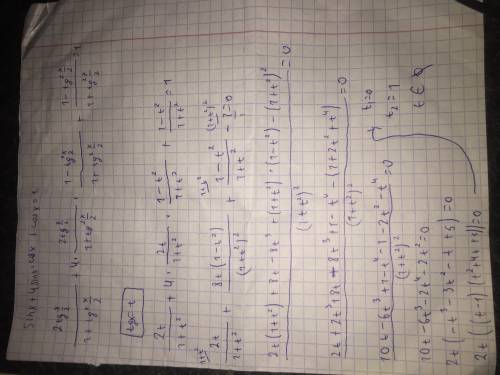 sinx + 4sinx·cosx + cosx = 1
2tg x/2 / 1+tg² x/2 + 4 · 2tg x/2 / 1+tg² x/2 · 1-tg² x/2 / 1+tg² x/2 + 1-tg² x/2 / 1+tg² x/2 = 1
2t / 1+t² + 4 · 2t / 1+t² · 1-t² / 1+t² + 1-t² / 1+t² = 1
2t / 1+t² + 8t(1-t²) / (1+t²)² + 1-t² / 1+t² - 1 = 0
2t(1+t²) + 8t - 8t³ + (1+t²)·(1-t²) - (1+t²)² / (1+t²)² = 0
2t + 2t³ + 8t + 8t³ + 1 - t⁴ - (1+2t²+t⁴) / (1+t²)² = 0
10t - 6t³ + 1 - t⁴ - 1 - 2t² - t⁴ / (1+t²)² = 0
10t - 6t³ - 2t² - 2t⁴ = 0
2t(-t³ - 3t² - t + 5) = 0
t₁ = 0
t₂ = 1